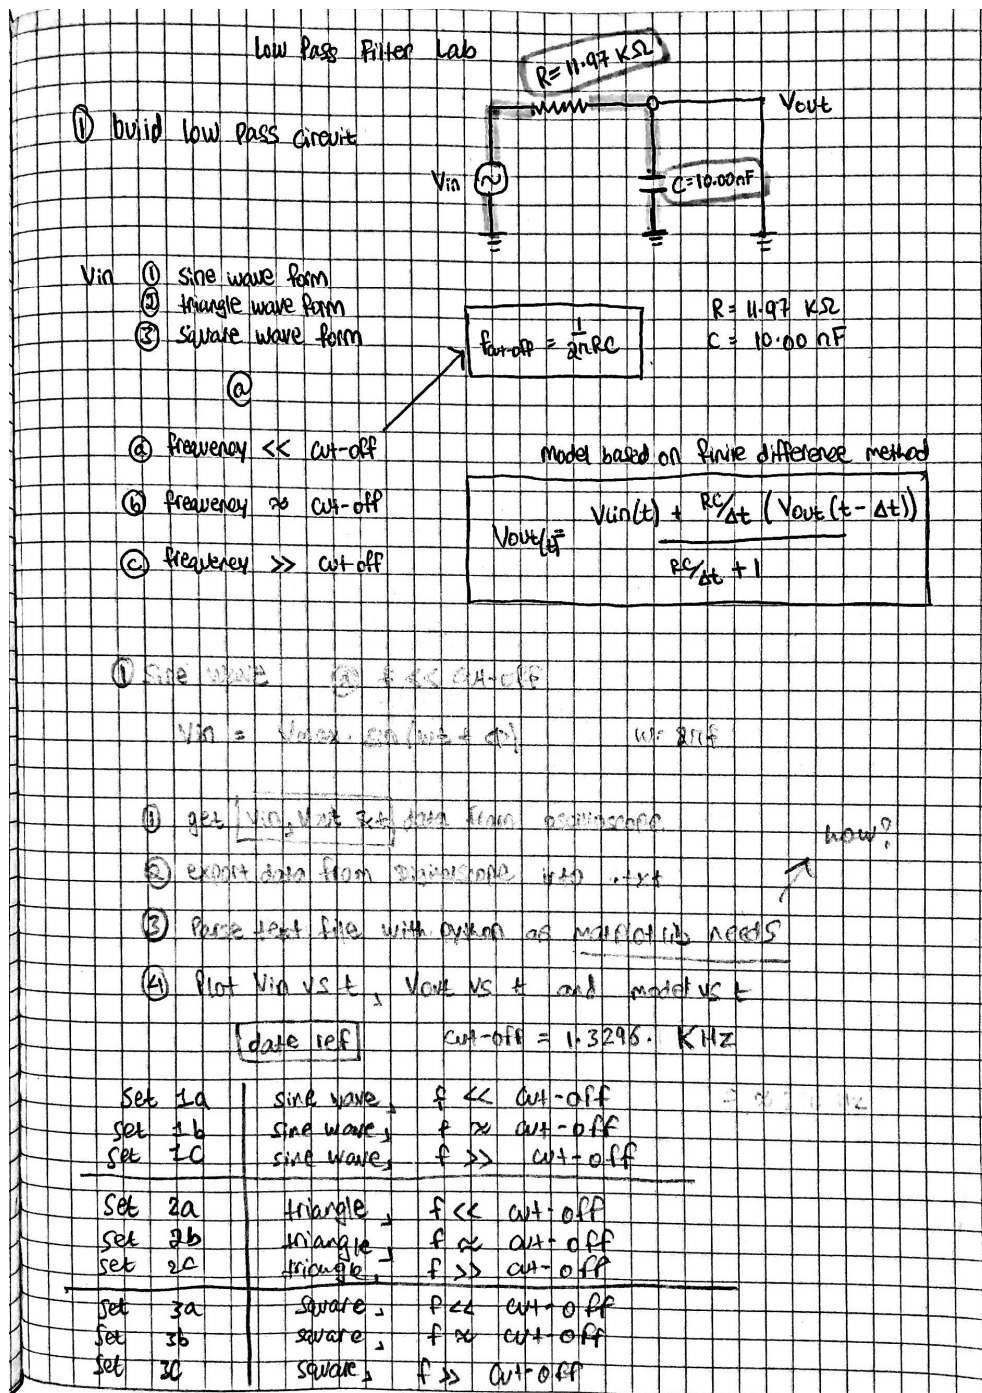 Low Pass Filter Lab
R= 11.97 KΩ
① build low pass circuit
Vout
Vin
C=10.00nF
Vin ① sine wave form
② triangle wave form
③ square wave form
fcut-off = 1/2πRC
R= 11.97 KΩ
C= 10.00 nF
ⓐ
ⓐ frequency << cut-off
ⓑ frequency ≈ cut-off
ⓒ frequency >> cut off
model based on finite difference method
Vout(t)= Vin(t) + RC/Δt (Vout(t-Δt)) / RC/Δt + 1
① Sine wave ⓐ f << cut-off
Vin = Vmax · sin(wt + φ) w= 2πf
① get Vin, Vout &t data from oscilloscope
how?
② export data from into .txt
③ Parse text file with python as matplotlib needs
④ Plot Vin vs t, Vout vs t and model vs t
date ref cut-off = 1.3296. KHz
Set 1a sine wave, f << cut-off
Set 1b sine wave, f ≈ cut-off
Set 1C sine wave, f >> cut-off
Set 2a triangle, f << cut-off
Set 2b triangle, f ≈ cut-off
Set 2C triangle, f >> cut-off
Set 3a square, f << cut-off
Set 3b square, f ≈ cut-off
Set 3C square, f >> cut-off